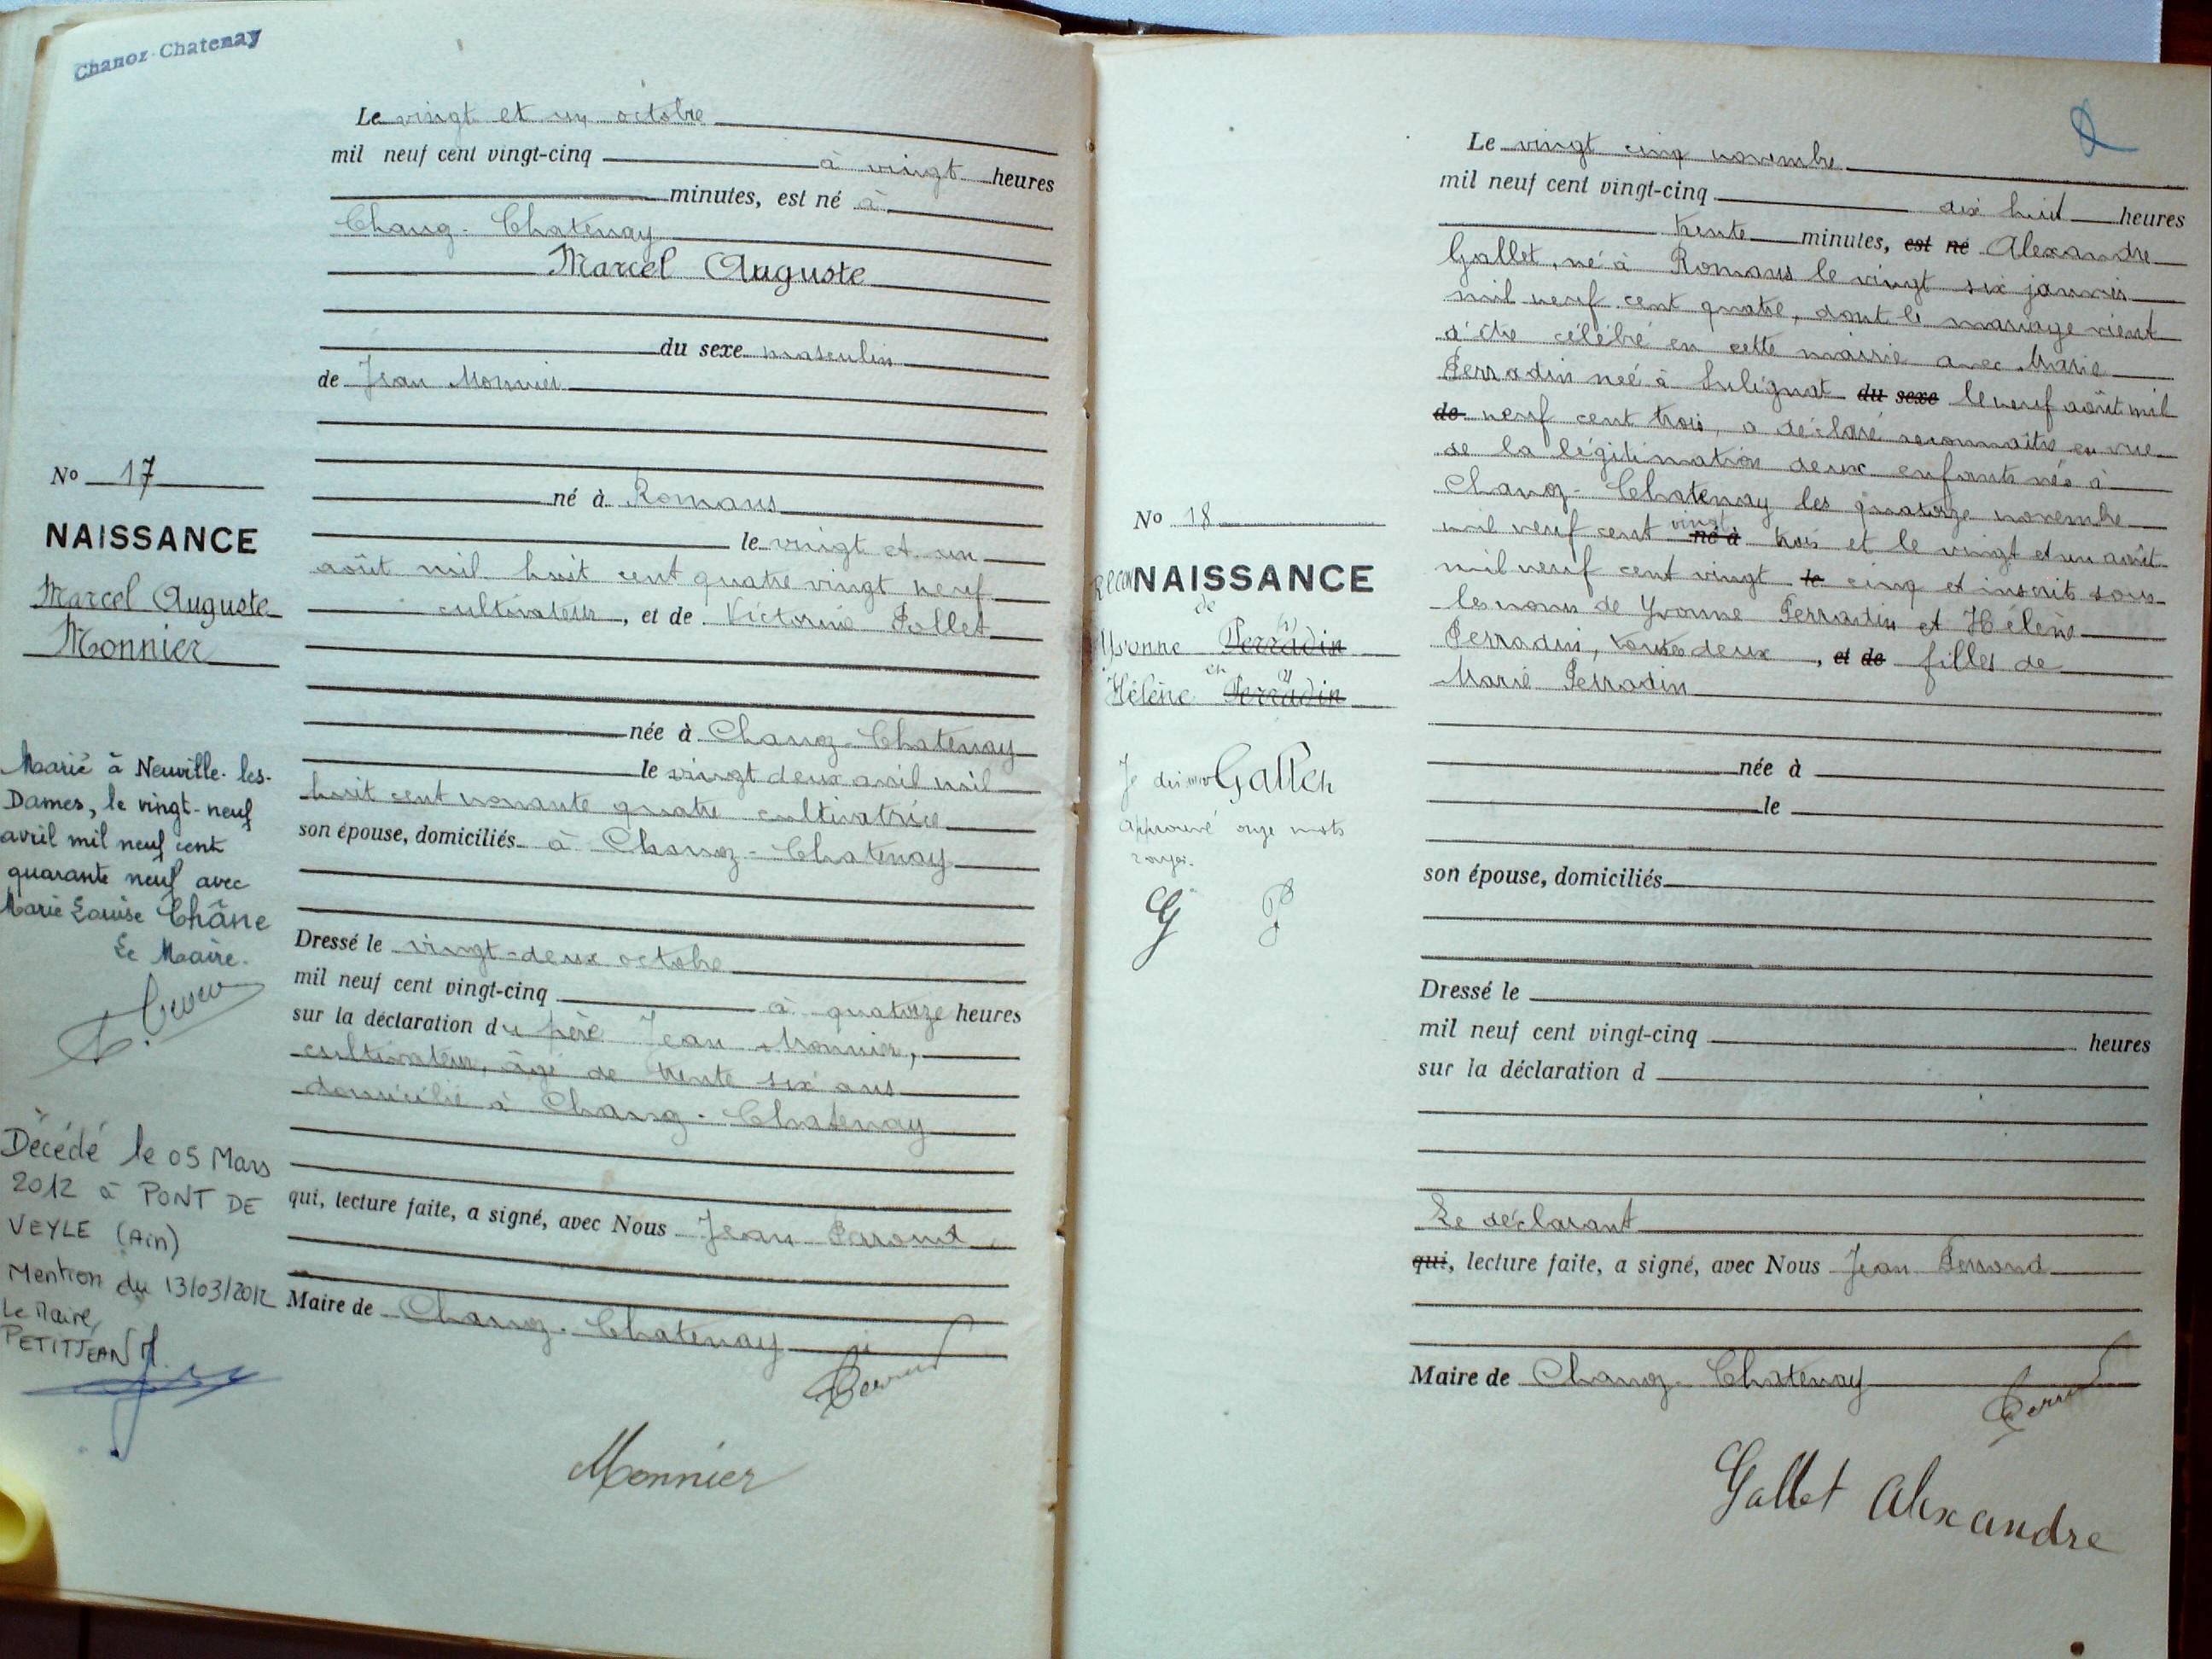 Chanoz-Chatenay
Le vingt et un octobre
mil neuf cent vingt-cinq à vingt heures
minutes, est né à
Chanoz-Chatenay
Marcel Auguste
du sexe masculin
de Jean Monnier
né à Romans
le vingt et un
août mil huit cent quatre vingt neuf
cultivateur, et de Victorine Pollet
née à Chanoz-Chatenay
le vingt deux avril mil
huit cent nonante quatre cultivatrice
son épouse, domiciliés à Chanoz-Chatenay
Dressé le vingt-deux octobre
mil neuf cent vingt-cinq à quatorze heures
sur la déclaration du père Jean Monnier,
cultivateur, âgé de trente six ans
domicilié à Chanoz-Chatenay
qui, lecture faite, a signé, avec Nous Jean Perroud
Maire de Chanoz-Chatenay
Perroud
Monnier
No 17
NAISSANCE
Marcel Auguste
Monnier
Marié à Neuville-les-
Dames, le vingt-neuf
avril mil neuf cent
quarante neuf avec
Marie Louise Châne
Le Maire.
Décédé le 05 Mars
2012 à PONT DE
VEYLE (Ain)
Mention du 13/03/2012
Le Maire,
PETITJEAN M.
Le vingt cinq novembre
mil neuf cent vingt-cinq dix huit heures
trente minutes, est né Alexandre
Gallet, né à Romans le vingt six janvier
mil neuf cent quatre, dont le mariage vient
d'être célébré en cette mairie avec Marie
Perradin née à Sulignat du sexe le neuf août mil
de neuf cent trois, a déclaré reconnaître en vue
de la légitimation deux enfants nés à
Chanoz-Chatenay les quatorze novembre
mil neuf cent vingt né à trois et le vingt et un août
mil neuf cent vingt le cinq et inscrits sous
les noms de Yvonne Perradin et Hélène
Perradin, toutes deux, et de filles de
Marie Perradin
née à
le
son épouse, domiciliés
Dressé le
mil neuf cent vingt-cinq heures
sur la déclaration d
Le déclarant
qui, lecture faite, a signé, avec Nous Jean Perroud
Maire de Chanoz-Chatenay
Perroud
Gallet Alexandre
No 18
RECONNAISSANCE
de
Yvonne Perradin (1)
et
Hélène Perradin (1)
Gallet
approuvé onze mots
rayés.
G P